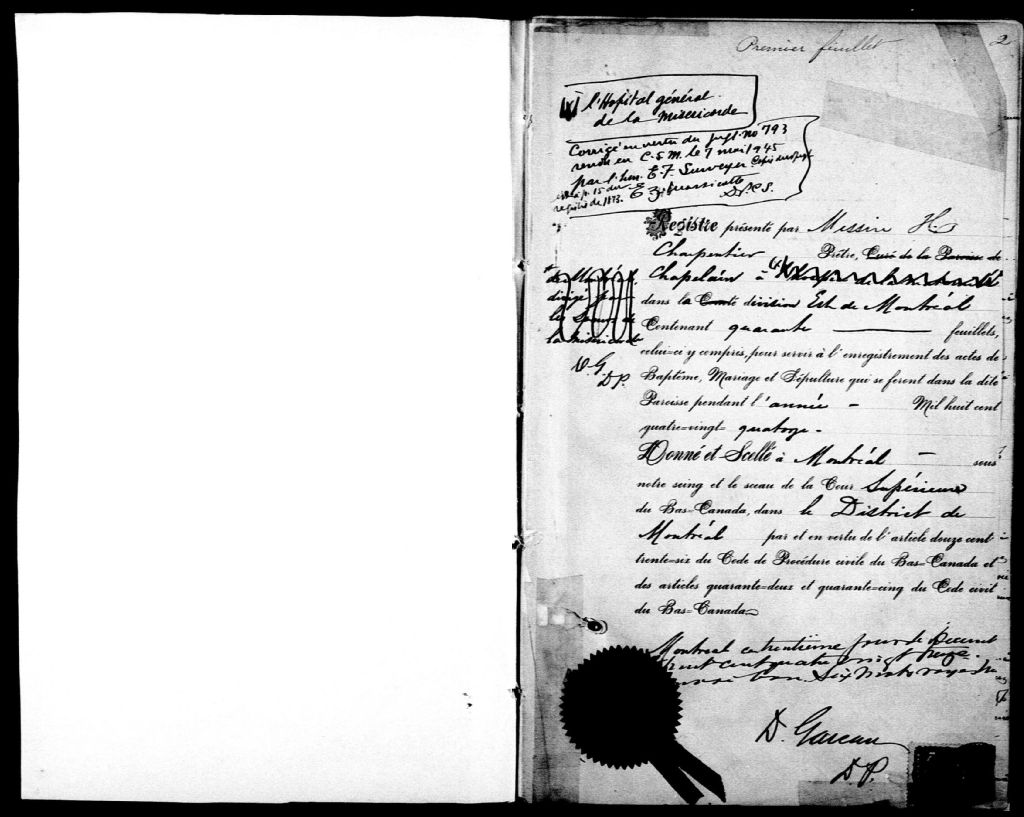 Premier feuillet
2
l'Hopital général
de la Misericorde
Corrigé en vertu du jugt. no 793
rendu en C.S.M. le 7 mai 1945
par l'hon. E. F. Surveyer
p. 15 du
registre de 1873.
D.P.C.S.
Registre présenté par Messire H.
Charpentier Prêtre, Curé de la Paroisse de
Chapelain à
dans la Comté division Est de Montréal
Contenant quarante feuillets,
celui-ci y compris, pour servir à l'enregistrement des actes de
Baptême, Mariage et Sépulture qui se feront dans la dite
Paroisse pendant l'année - Mil huit cent
quatre-vingt- quatorze -
Donné et Scellé à Montréal - sous
notre seing et le sceau de la Cour Supérieure
du Bas-Canada, dans le District de
Montréal par et en vertu de l'article douze cent
trente-six du Code de Procédure civile du Bas-Canada et
des articles quarante-deux et quarante-cinq du Code civil
du Bas-Canada
de Montréal
dirigé par
les Soeurs de
la Miséricorde
D. G.
D.P.
Montréal ce trentième jour de Decembre
huit cent quatre vingt treize.
bon. Six mots rayés
D. Gareau
D. P.